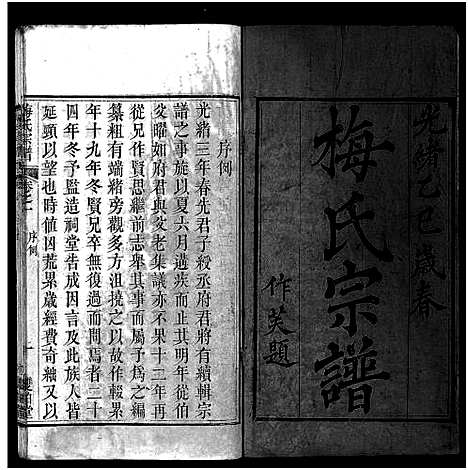 光緒乙巳歲春
梅氏宗譜
作英題
序例
光緒三年春先君子殺丞府君將有續輯宗
譜之事旋以夏六月遘疾而止其明年從伯
父曜如府君與父老集議亦不果十二年再
從兄作賢思繼前志舉其事而屬予爲之編
纂粗有端緒旁觀多方沮撓之以故作輟累
年十九年冬賢兄卒無復過而問焉者二十
四年冬予監造祠堂告成因及此族人皆
延頸以望也時値因荒累歲經費奇絀又以
梅氏宗譜
卷之一
序例
一